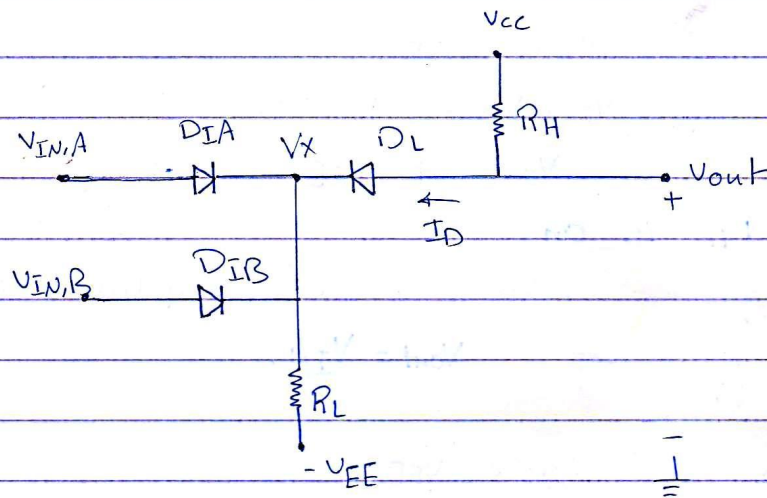 Vcc
RH
VIN,A DIA VX DL Vout
+
ID
VIN,B DIB
RL
-VEE
-